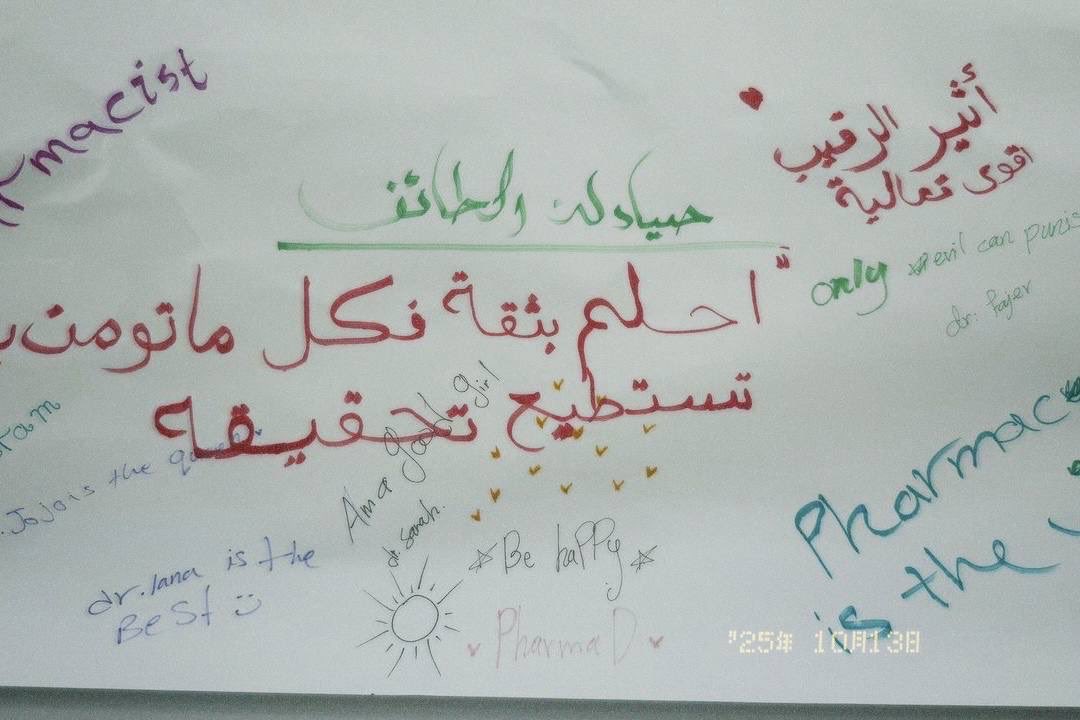 macist
أثير الرقيب
اقوى فعالية
صيادلة الطائف
"احلم بثقة فكل ماتومن ب
تستطيع تحقيقه
only
evil can punis
dr: fajer
ram
Jojo is the queen
Am a good girl
dr. sarah.
dr. lana is the
BeSt :)
Be happy
:)
PharmaD
Pharmac
is the
'25年 10月13日